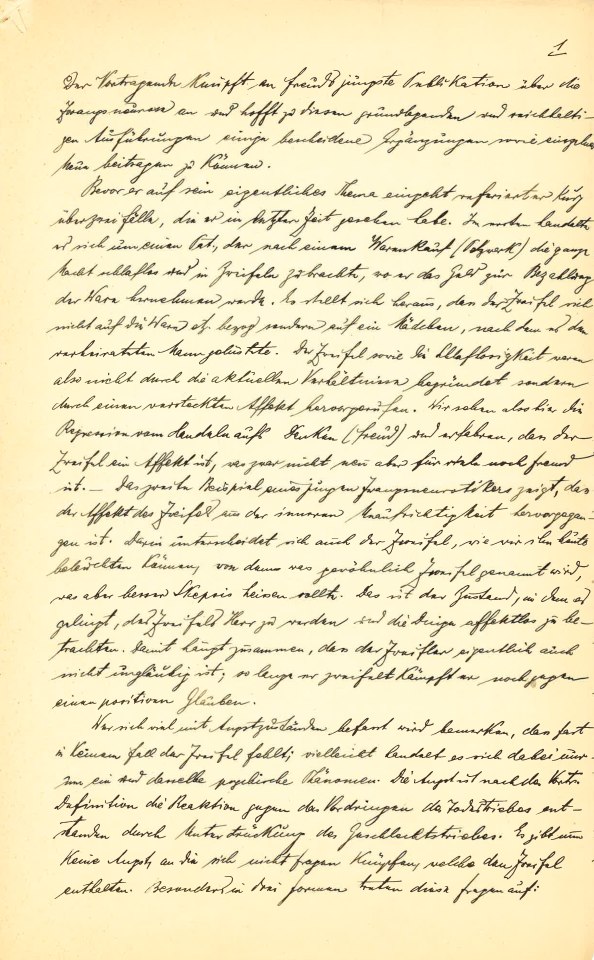 1
Der Vortragende knüpft an Freuds jüngste Publikation über die
Zwangsneurose an und hofft zu diesen grundlegenden und reichhalti-
gen Ausführungen einige bescheidene Ergänzungen sowie einzelne
Neue beitragen zu können.
Bevor er auf sein eigentliches Thema eingeht referiert er kurz
über zwei Fälle, die er in letzter Zeit gesehen habe. Im ersten handelte
es sich um einen Pat., der nach einem Warenkauf (Pelzwerk) die ganze
Nacht schlaflos und in Zweifeln zubrachte, wo er das Geld zur Bezahlung
der Ware hernehmen werde. Es stellt sich heraus, dass der Zweifel sich
nicht auf die Ware etc. bezog sondern auf ein Mädchen, nach dem es den
verheirateten Mann gelüstete. Der Zweifel sowie die Schlaflosigkeit waren
also nicht durch die aktuellen Verhältnisse begründet sondern
durch einen versteckten Affekt hervorgerufen. Wir sehen also hier die
Regression vom Handeln aufs Denken (Freud) und erfahren, dass der
Zweifel ein Affekt ist, was zwar nicht neu aber für viele noch fremd
ist. — Das zweite Beispiel eines jungen Zwangsneurotikers zeigt, dass
der Affekt des Zweifels aus der inneren Unaufrichtigkeit hervorgegan-
gen ist. Darin unterscheidet sich auch der Zweifel, wie wir ihn heute
beleuchten können, von dem was gewöhnlich Zweifel genannt wird,
was aber besser Skepsis heissen sollte. Das ist der Zustand, in dem es
gelingt, des Zweifels Herr zu werden und die Dinge affektlos zu be-
trachten. Damit hängt zusammen, dass der Zweifler eigentlich auch
nicht ungläubig ist; so lange er zweifelt kämpft er noch gegen
einen positiven Glauben.
Wer sich viel mit Angstzuständen befasst wird bemerken, dass fast
in keinem Fall der Zweifel fehlt; vielleicht handelt es sich dabei nur
um ein und dasselbe psychische Phänomen. Die Angst ist nach des Vortr.
Definition die Reaktion gegen das Vordringen des Todestriebes ent-
standen durch Unterdrückung des Geschlechtstriebes. Es gibt nun
keine Angst, an die sich nicht Fragen knüpfen, welche den Zweifel
enthalten. Besonders in drei Formen treten diese Fragen auf: